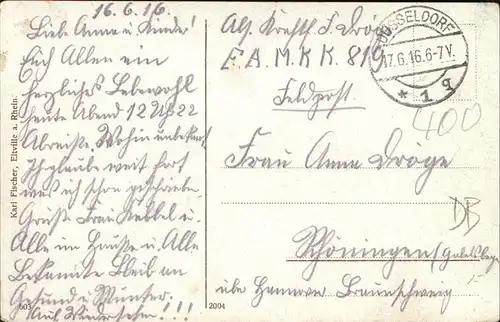 16.6.16.
Liebe Anna u. Kinder!
Euch Allen ein
herzliches Lebewohl
heute Abend 12 Uhr 22
Abreise. Wohin unbekannt.
Ich glaube weit fort
was ich schon geschrieben.
Grüße Frau u.
Alle im Hause u. Alle
Bekannte Bleib an
Gesund u. Munter.
Auf Wiedersehn!!!
Karl Fischer, Eltville a. Rhein.
2004
Abs. F. Dröge
F.A.M.K.K. 819
Feldpost.
DÜSSELDORF
17.6.16.6-7V.
* 1 q
400
Frau Anna Dröge
DB
Schöningen
über Hannover Braunschweig